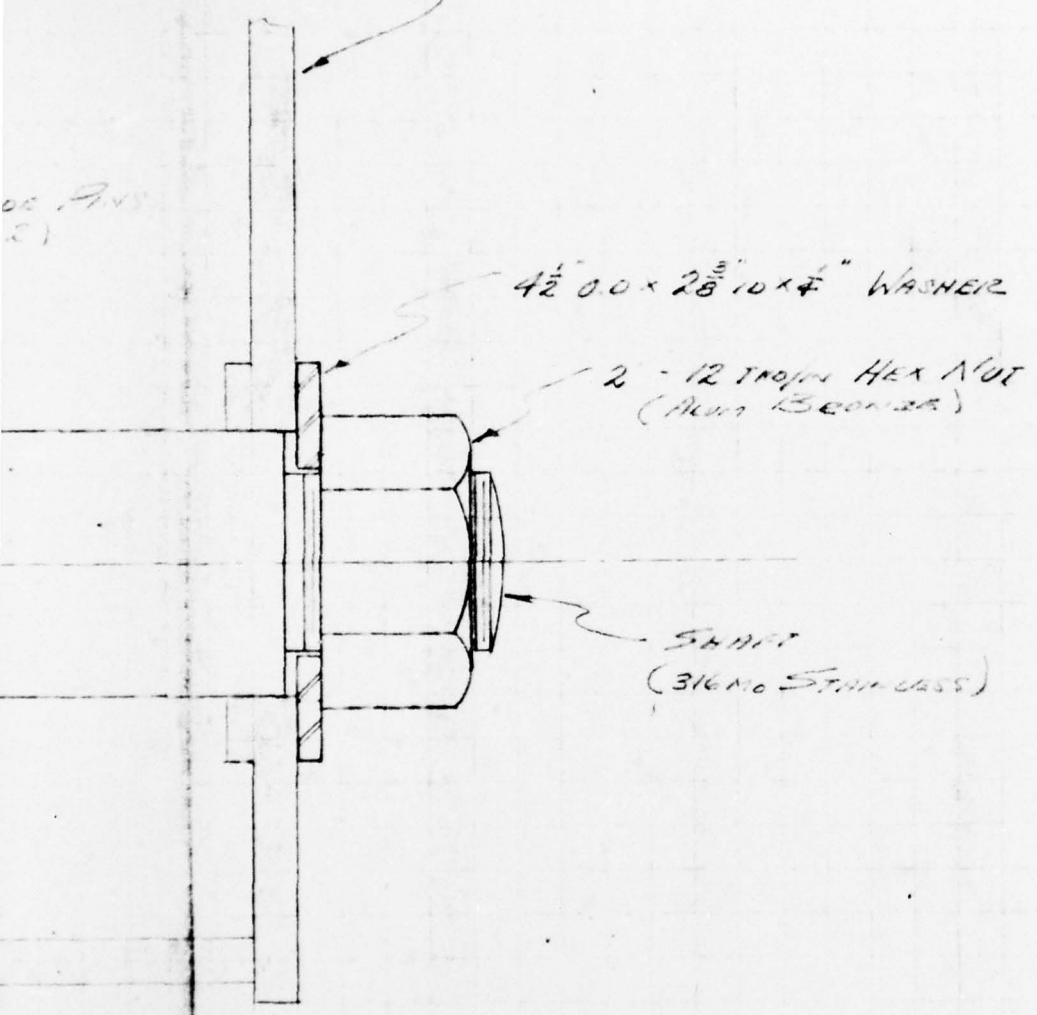 4½" O.D × 2⅜" ID × ¼" WASHER
2 - 12 THD/IN HEX NUT
(ALUM BRONZE)
SHAFT
(316 Mo STAINLESS)